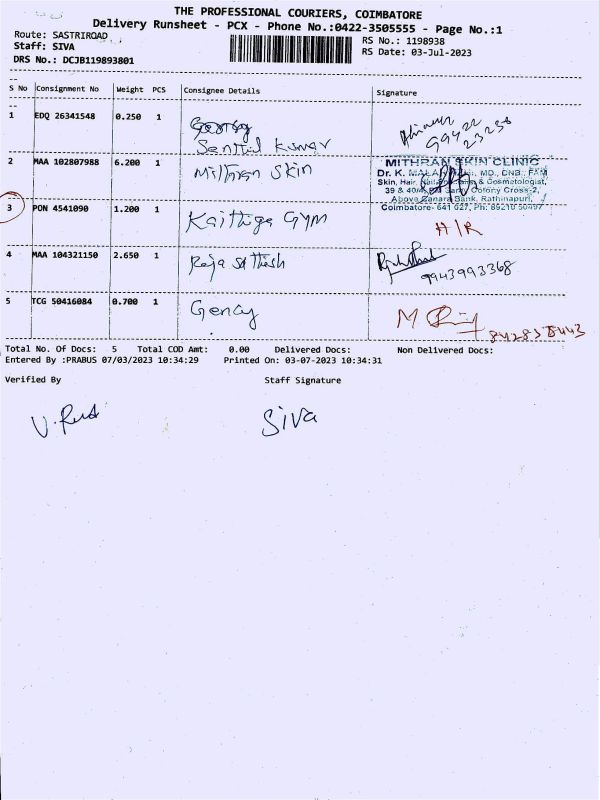 THE PROFESSIONAL COURIERS, COIMBATORE
Delivery Runsheet - PCX - Phone No.:0422-3505555 - Page No.:1
Route: SASTRIROAD
Staff: SIVA
DRS No.: DCJB119893801
RS No.: 1198938
RS Date: 03-Jul-2023
S No Consignment No Weight PCS Consignee Details Signature
1 EDQ 26341548 0.250 1
Senthil Kumar
99422
23238
2 MAA 102807988 6.200 1 Mithran Skin
MITHRAN SKIN CLINIC
Dr. K. MD., DNB., FAM
Skin, Hair, & Cosmetologist,
39 & 40 Colony Cross-2,
Above Canara Bank, Rathinapuri,
Coimbatore- 641 027, Ph: 89210 50497
3 PON 4541090 1.200 1 Kaithiga Gym H/R
4 MAA 104321150 2.650 1 Raja Sathish
9943993368
5 TCG 50416084 0.700 1 Gency M
Total No. Of Docs: 5 Total COD Amt: 0.00 Delivered Docs: Non Delivered Docs:
Entered By :PRABUS 07/03/2023 10:34:29 Printed On: 03-07-2023 10:34:31
Verified By Staff Signature
Siva